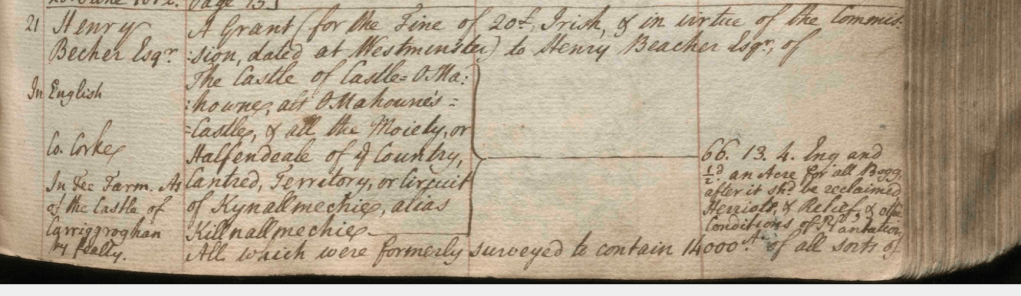 Page 15
21 Henry
Becher Esqr.
In English
Co. Corke
In Fee Farm. As
of the Castle of
Carriggroghan
by fealty.
A Grant (for the Fine of 20£. Irish, & in virtue of the Commis:
:sion, dated at Westminster) to Henry Beacher Esqr, of
The Castle of Castle=OMa:
:houne, als OMahoune's=
=Castle, & all the Moiety, or
Halfendeale of ye Country,
Cantred, Territory, or Circuit
of Kynallmechie, alias
Killnallmechie
All which were formerly surveyed to contain 14000 As. of all sorts of
66. 13. 4. Eng and
½d an Acre for all Bogg,
after it shd. be reclaimed
Herriots, & Relief, &
Conditions of Plantation